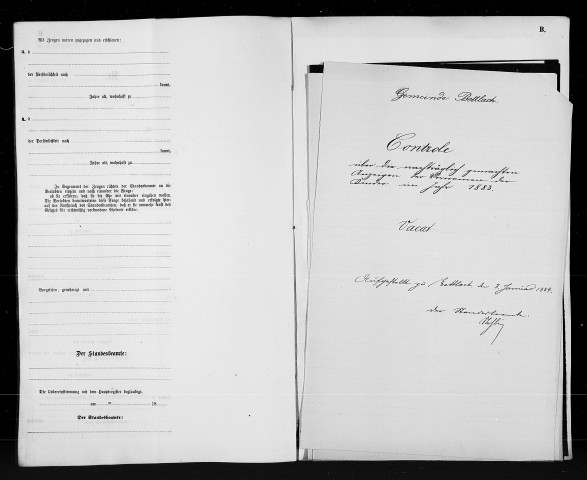 Als Zeugen waren zugezogen und erschienen:
3. d
der Persönlichkeit nach
kannt,
Jahre alt, wohnhaft zu
4. d
der Persönlichkeit nach
kannt,
Jahre alt, wohnhaft zu
In Gegenwart der Zeugen richtete der Standesbeamte an die
Verlobten einzeln und nach einander die Frage:
ob sie erklären, daß sie die Ehe mit einander eingehen wollen.
Die Verlobten beantworteten diese Frage bejahend und erfolgte hier-
auf der Ausspruch des Standesbeamten, daß er sie nunmehr kraft des
Gesetzes für rechtmäßig verbundene Eheleute erkläre.
Vorgelesen, genehmigt und
Der Standesbeamte:
Die Uebereinstimmung mit dem Hauptregister beglaubigt.
am ten 18
Der Standesbeamte:
B.
Gemeinde Bettlach
Controle
über die nachträglich gemachten
Anzeigen der Vornamen der
Kinder im Jahr 1883.
Vacat
Aufgestellt zu Bettlach den 3 Januar 1884.
der Standesbeamte